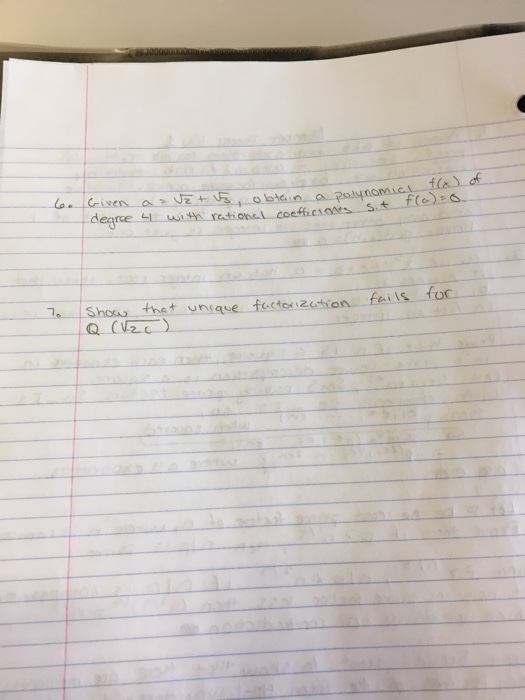 6. Given a = √2 + √3, obtain a polynomial f(x) of
degree 4 with rational coefficients s.t f(a)=0
7. Show that unique factorization fails for
Q (√26)